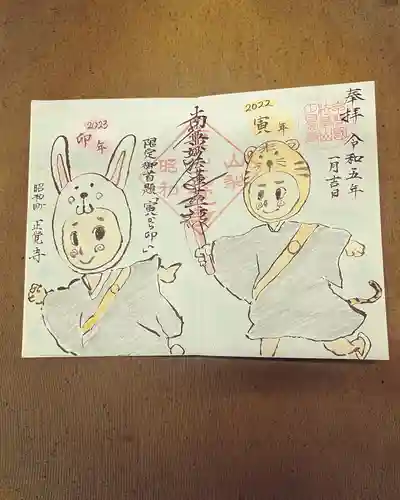 奉拝 令和五年
一月吉日
2022
寅年
南無妙法蓮華経
山梨
昭和
限定御首題「寅から卯へ」
2023
卯年
昭和町 正覚寺